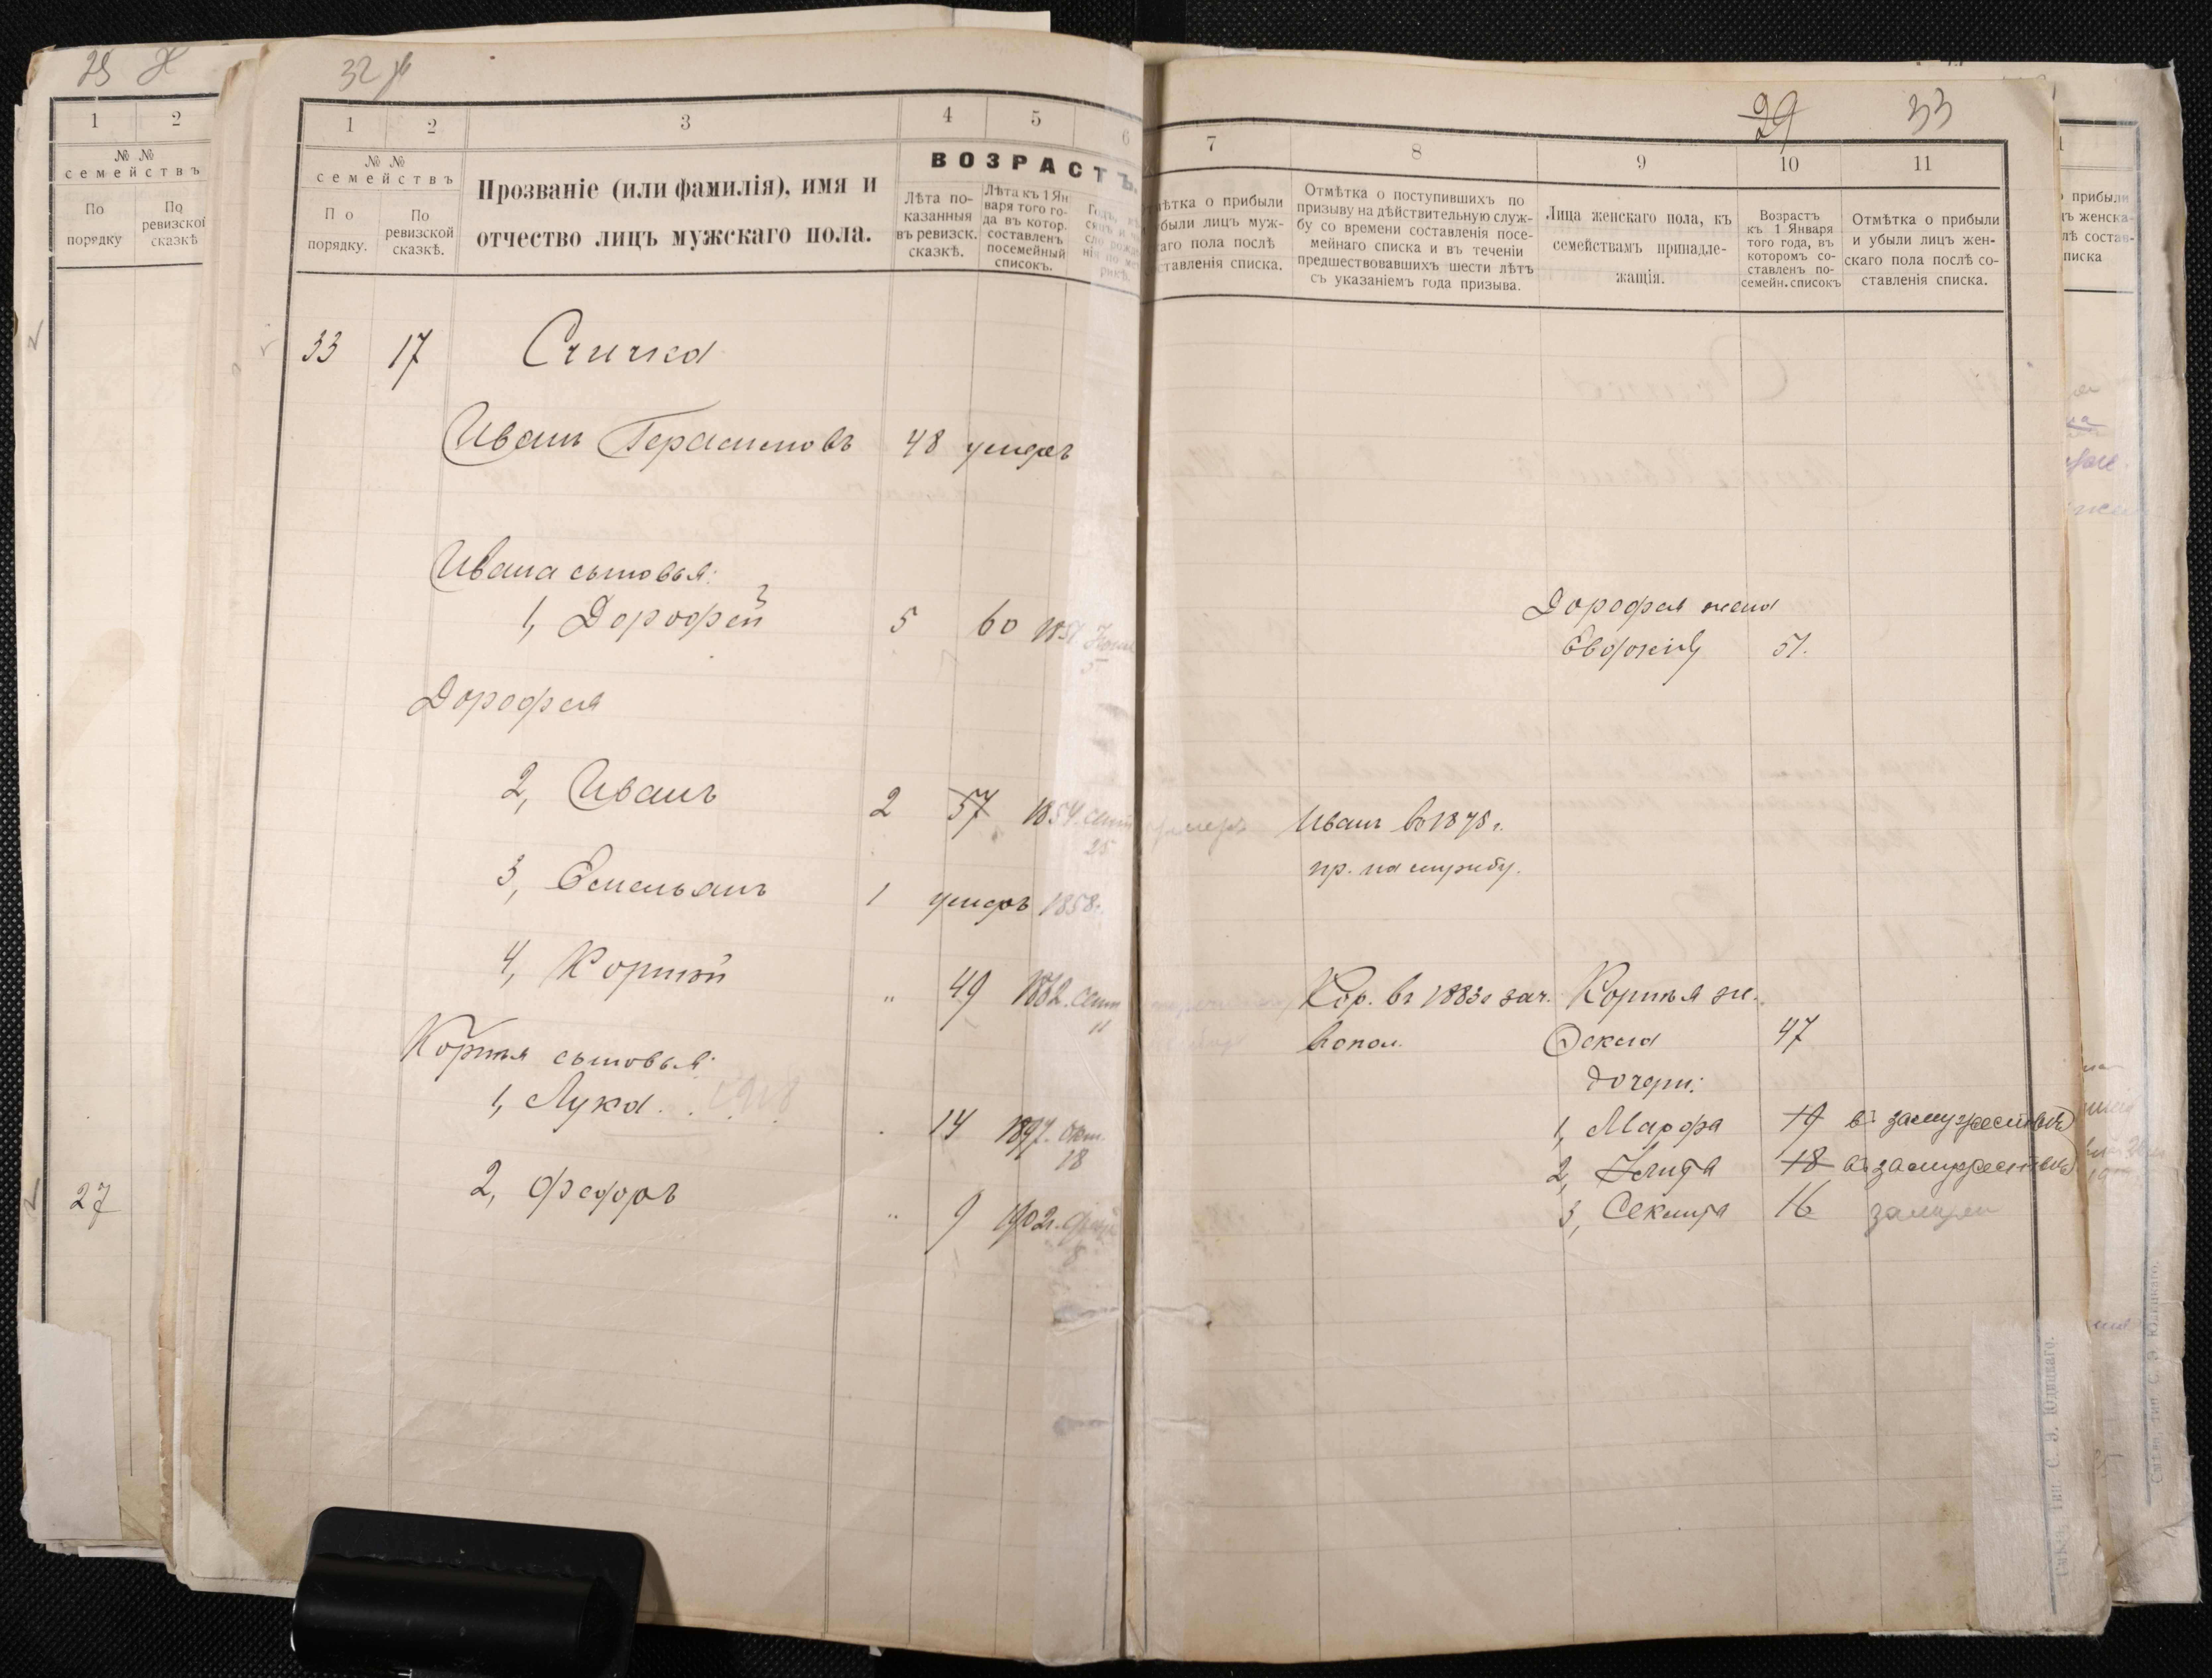 29
1 2
№ №
семействъ
По
порядку
По
ревизской
сказкѣ
27
32
1 2 3 4 5 6
№ №
семействъ
По
порядку.
По
ревизской
сказкѣ.
Прозваніе (или фамилія), имя и
отчество лицъ мужскаго пола.
ВОЗРАСТЪ.
Лѣта по-
казанныя
въ ревизск.
сказкѣ.
Лѣта къ 1 Ян
варя того го-
да въ котор.
составленъ
посемейный
списокъ.
33 17 Спичка
Иванъ Герасимовъ 48 умеръ
Ивана сыновья:
1, Дорофей 5 60
Дорофея
2, Иванъ 2 57 1854. сент
25
3, Емельянъ 1 умеръ 1858г.
4, Корній " 49 1862. Сент
Корнея сыновья:
1, Лука 14 1897. Окт.
18
2, Федоръ " 9 1902г.
8
29 33
7 8 9 10 11
Отмѣтка о прибыли
и убыли лицъ муж-
скаго пола послѣ
составленія списка.
Отмѣтка о поступившихъ по
призыву на дѣйствительную служ-
бу со времени составленія посе-
мейнаго списка и въ теченіи
предшествовавшихъ шести лѣтъ
съ указаніемъ года призыва.
Лица женскаго пола, къ
семействамъ принадле-
жащія.
Возрастъ
къ 1 Января
того года, въ
которомъ со-
ставленъ по-
семейн. списокъ
Отмѣтка о прибыли
и убыли лицъ жен-
скаго пола послѣ со-
ставленія списка.
Дорофея жена
51.
умеръ Иванъ въ 1875 г.
пр. на службу.
Кор. въ 1883г зач. Корнея ж.
въ опол. Фекла 47
дочери:
1, Марфа 19 въ замужествѣ
2, 18 въ замужествѣ
3, 16 замужем
Тип. С. Э. Юдицкаго.